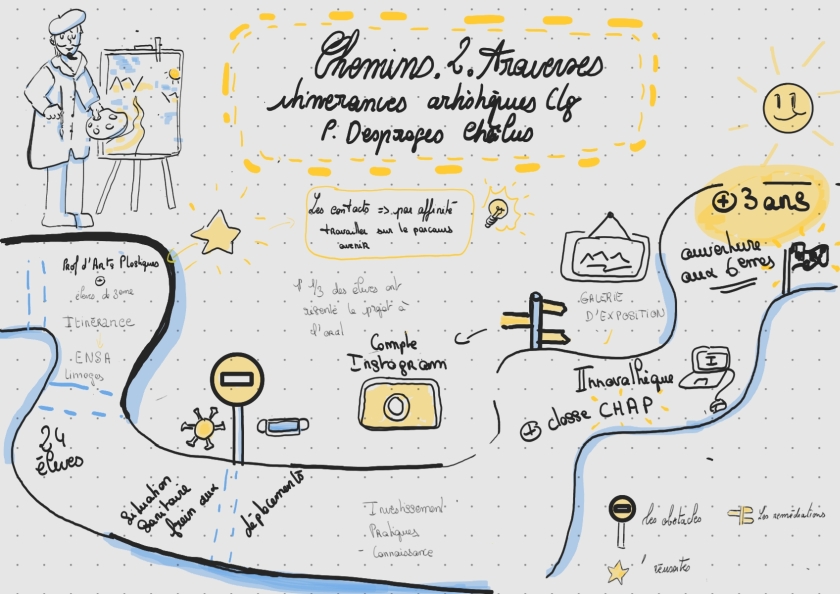 Chemins. 2. Traverses
itinérances artistiques Clg
P. Desproges Châlus
Les contacts => par affinité
travailler sur le parcours
avenir
+ 3 ans
ouverture
aux 6èmes
Prof d'Arts Plastiques
+
élèves de 3ème
Itinérance
ENSA
Limoges
1/3 des élèves ont
présenté le projet à
l'oral
GALERIE
D'EXPOSITION
Compte
Instagram
Innovathèque
+ classe CHAP
24
élèves
Situation
sanitaire
frein aux
déplacements
- Investissement
- Pratiques
- Connaissance
les obstacles
Les remédiations
réussites